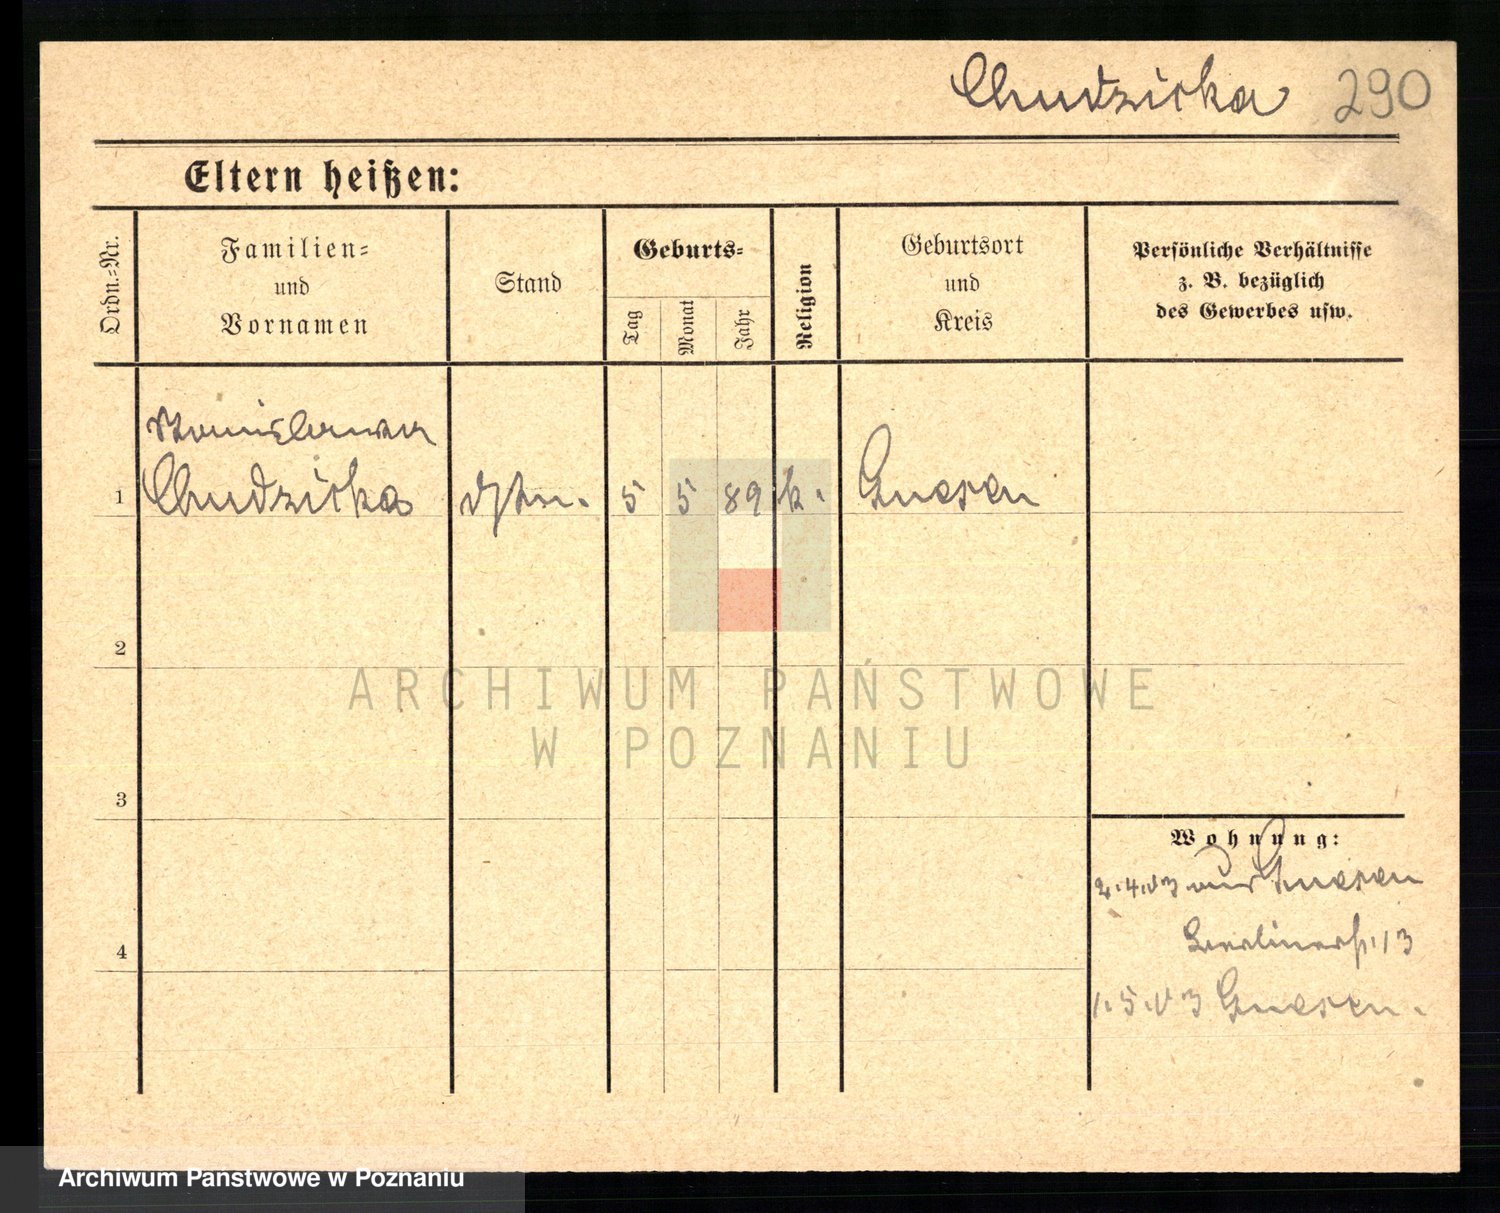 Chudzicka 290
Eltern heißen:
Ordn.=Nr.
Familien=
und
Vornamen
Stand
Geburts=
Tag
Monat
Jahr
Religion
Geburtsort
und
Kreis
Persönliche Verhältnisse
z. B. bezüglich
des Gewerbes usw.
Stanislawa
1 Chudzicka 5 5 89 k. Gnesen
2
ARCHIWUM PAŃSTWOWE
W POZNANIU
3
Wohnung:
2.4.03 aus Gnesen
Berlinerstr. 13
4
1.5.03 Gnesen.
Archiwum Państwowe w Poznaniu